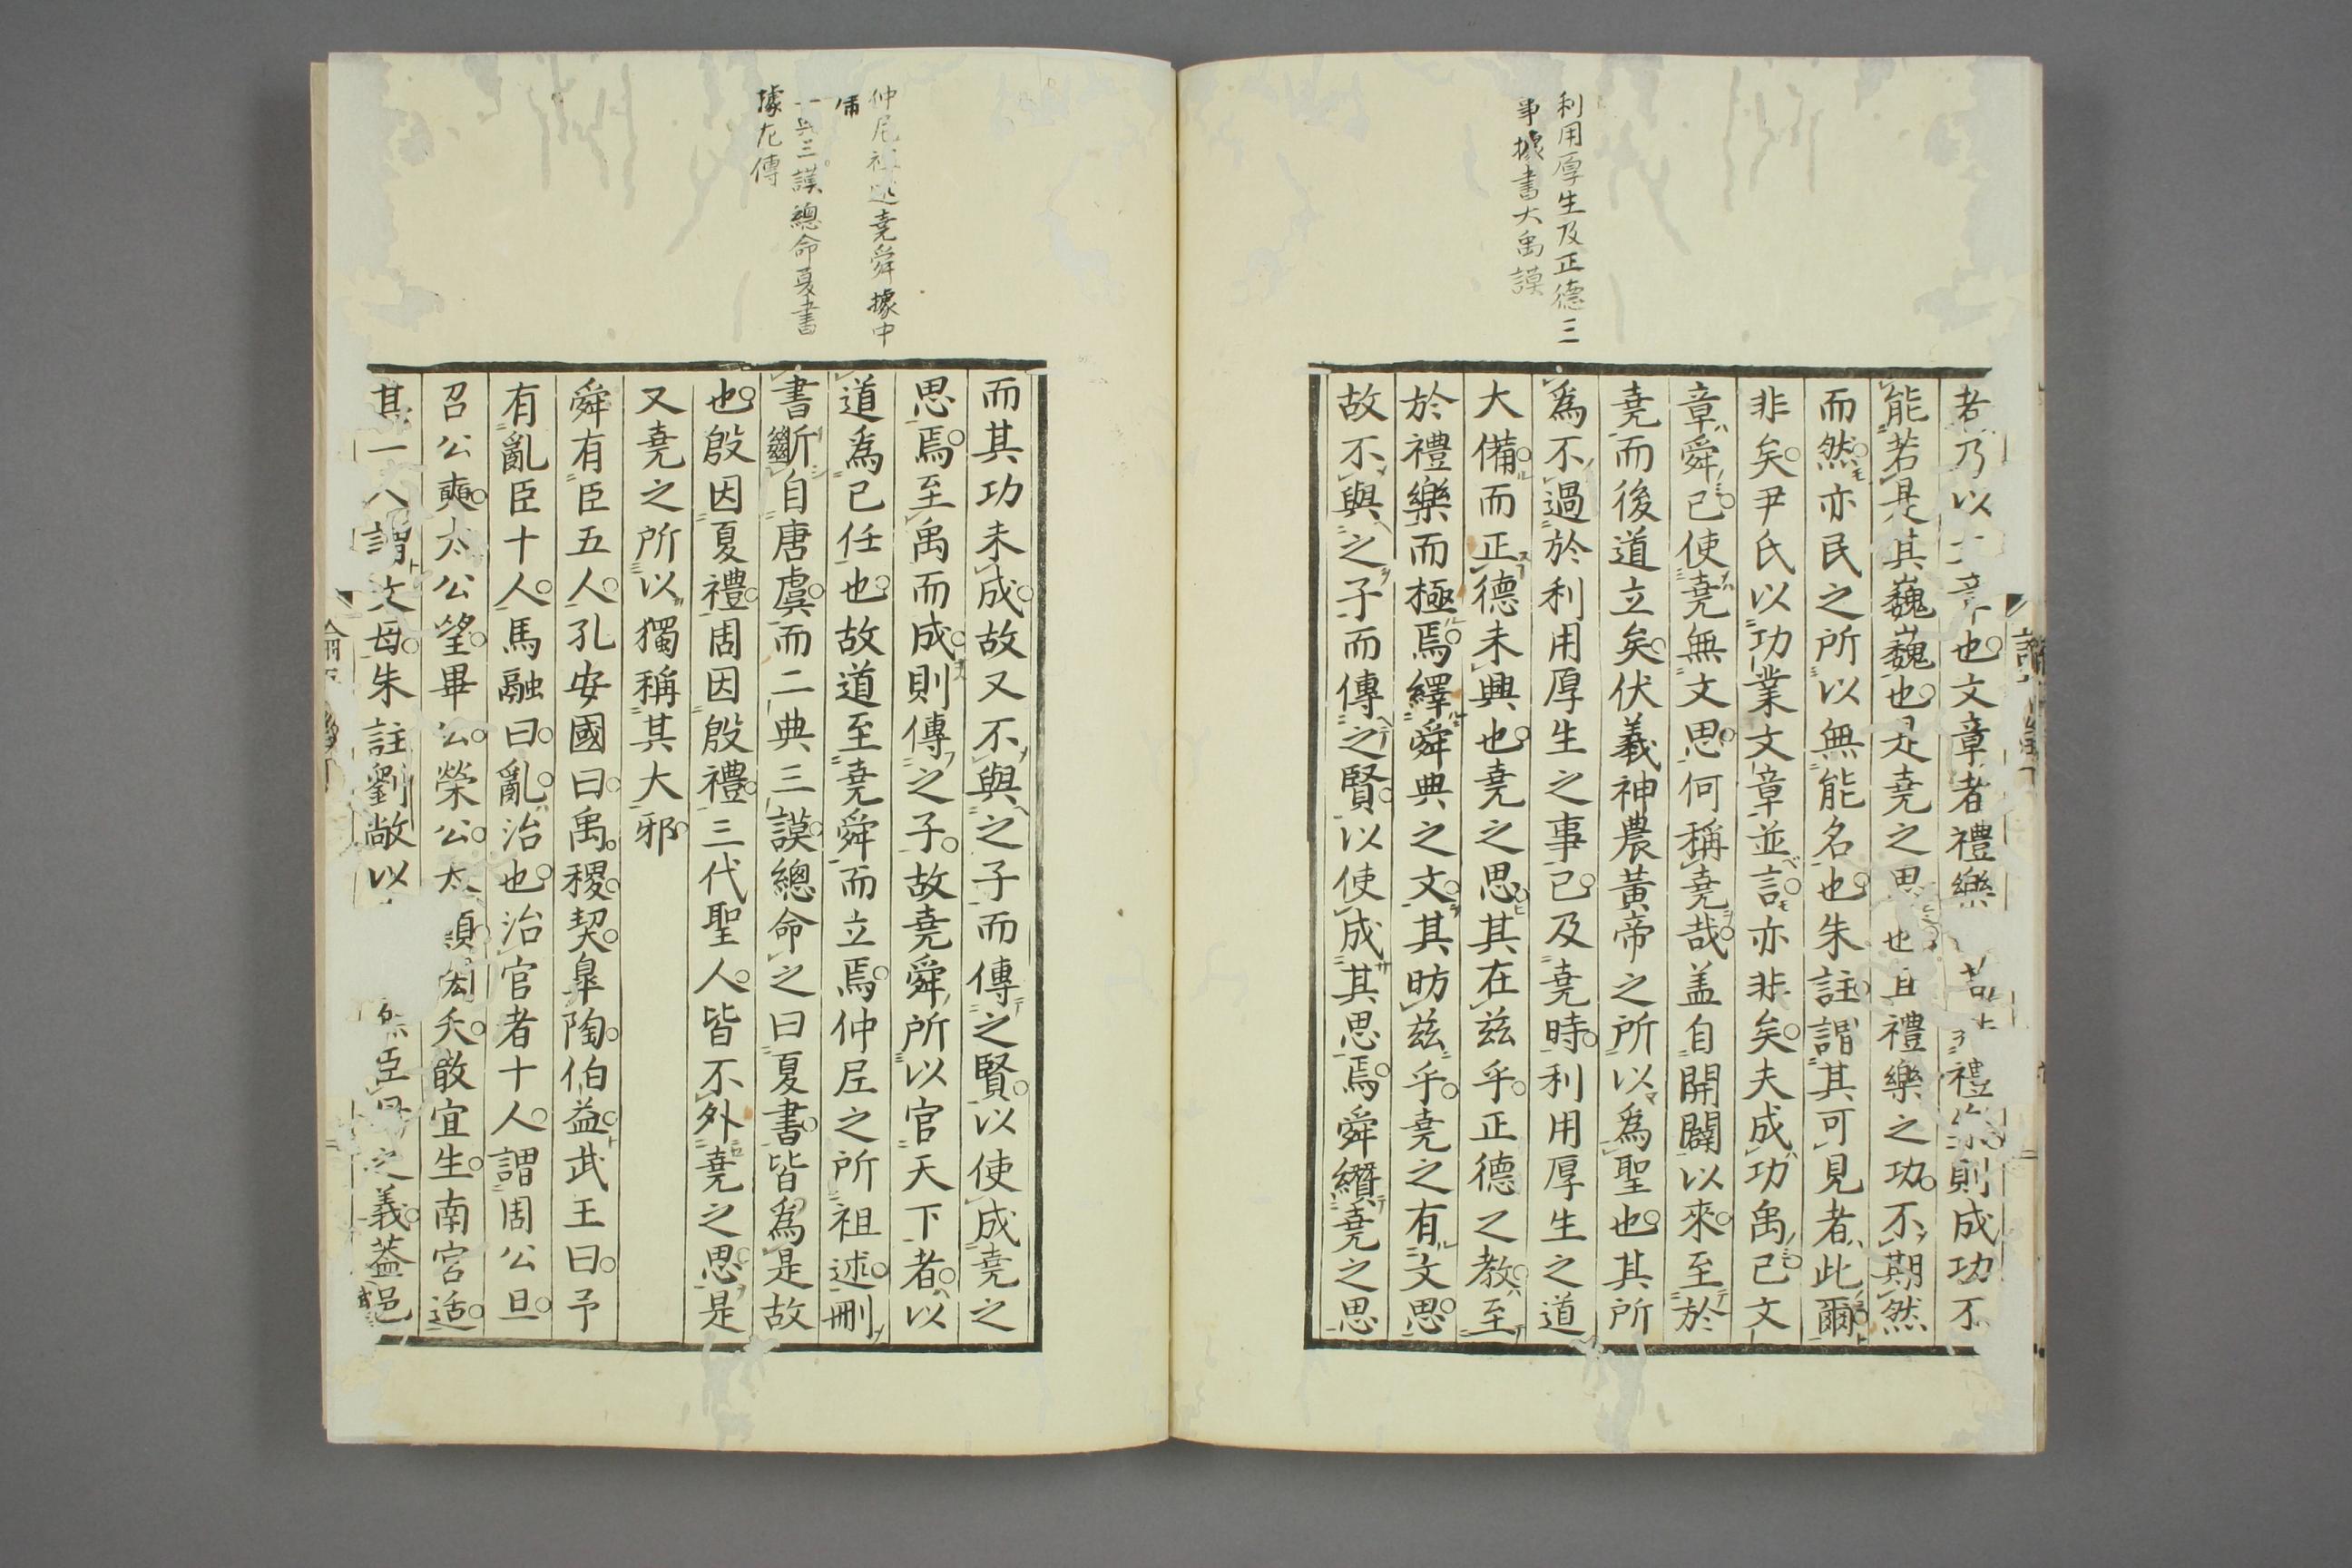 利用厚生及正德三
事據書大禹謨
者乃以文章也文章者禮樂 禮樂則成功不
能若是其巍巍也是堯之思也且禮樂之功不期然
而然亦民之所以無能名也朱註謂其可見者此爾
非矣尹氏以功業文章並言亦非矣夫成功禹已文
章舜已使堯無文思何稱堯哉盖自開闢以來至於
堯而後道立矣伏羲神農黃帝之所以為聖也其所
為不過於利用厚生之事已及堯時利用厚生之道
大備而正德未興也堯之思其在茲乎正德之教至
於禮樂而極焉繹舜典之文其昉茲乎堯之有文思
故不與之子而傳之賢以使成其思焉舜纘堯之思
仲尼祖述堯舜據中
庸
二典三謨總命夏書
據左傳
而其功未成故又不與之子而傳之賢以使成堯之
思焉至禹而成則傳之子故堯舜所以官天下者以
道為己任也故道至堯舜而立焉仲尼之所祖述刪
書斷自唐虞而二典三謨總命之曰夏書皆為是故
也殷因夏禮周因殷禮三代聖人皆不外堯之思是
又堯之所以獨稱其大邪
舜有臣五人孔安國曰禹稷契皐陶伯益武王曰予
有亂臣十人馬融曰亂治也治官者十人謂周公旦
召公奭太公望畢公榮公太顛閎夭散宜生南宮适
其一人謂文母朱註劉敞以 無臣母之義蓋邑